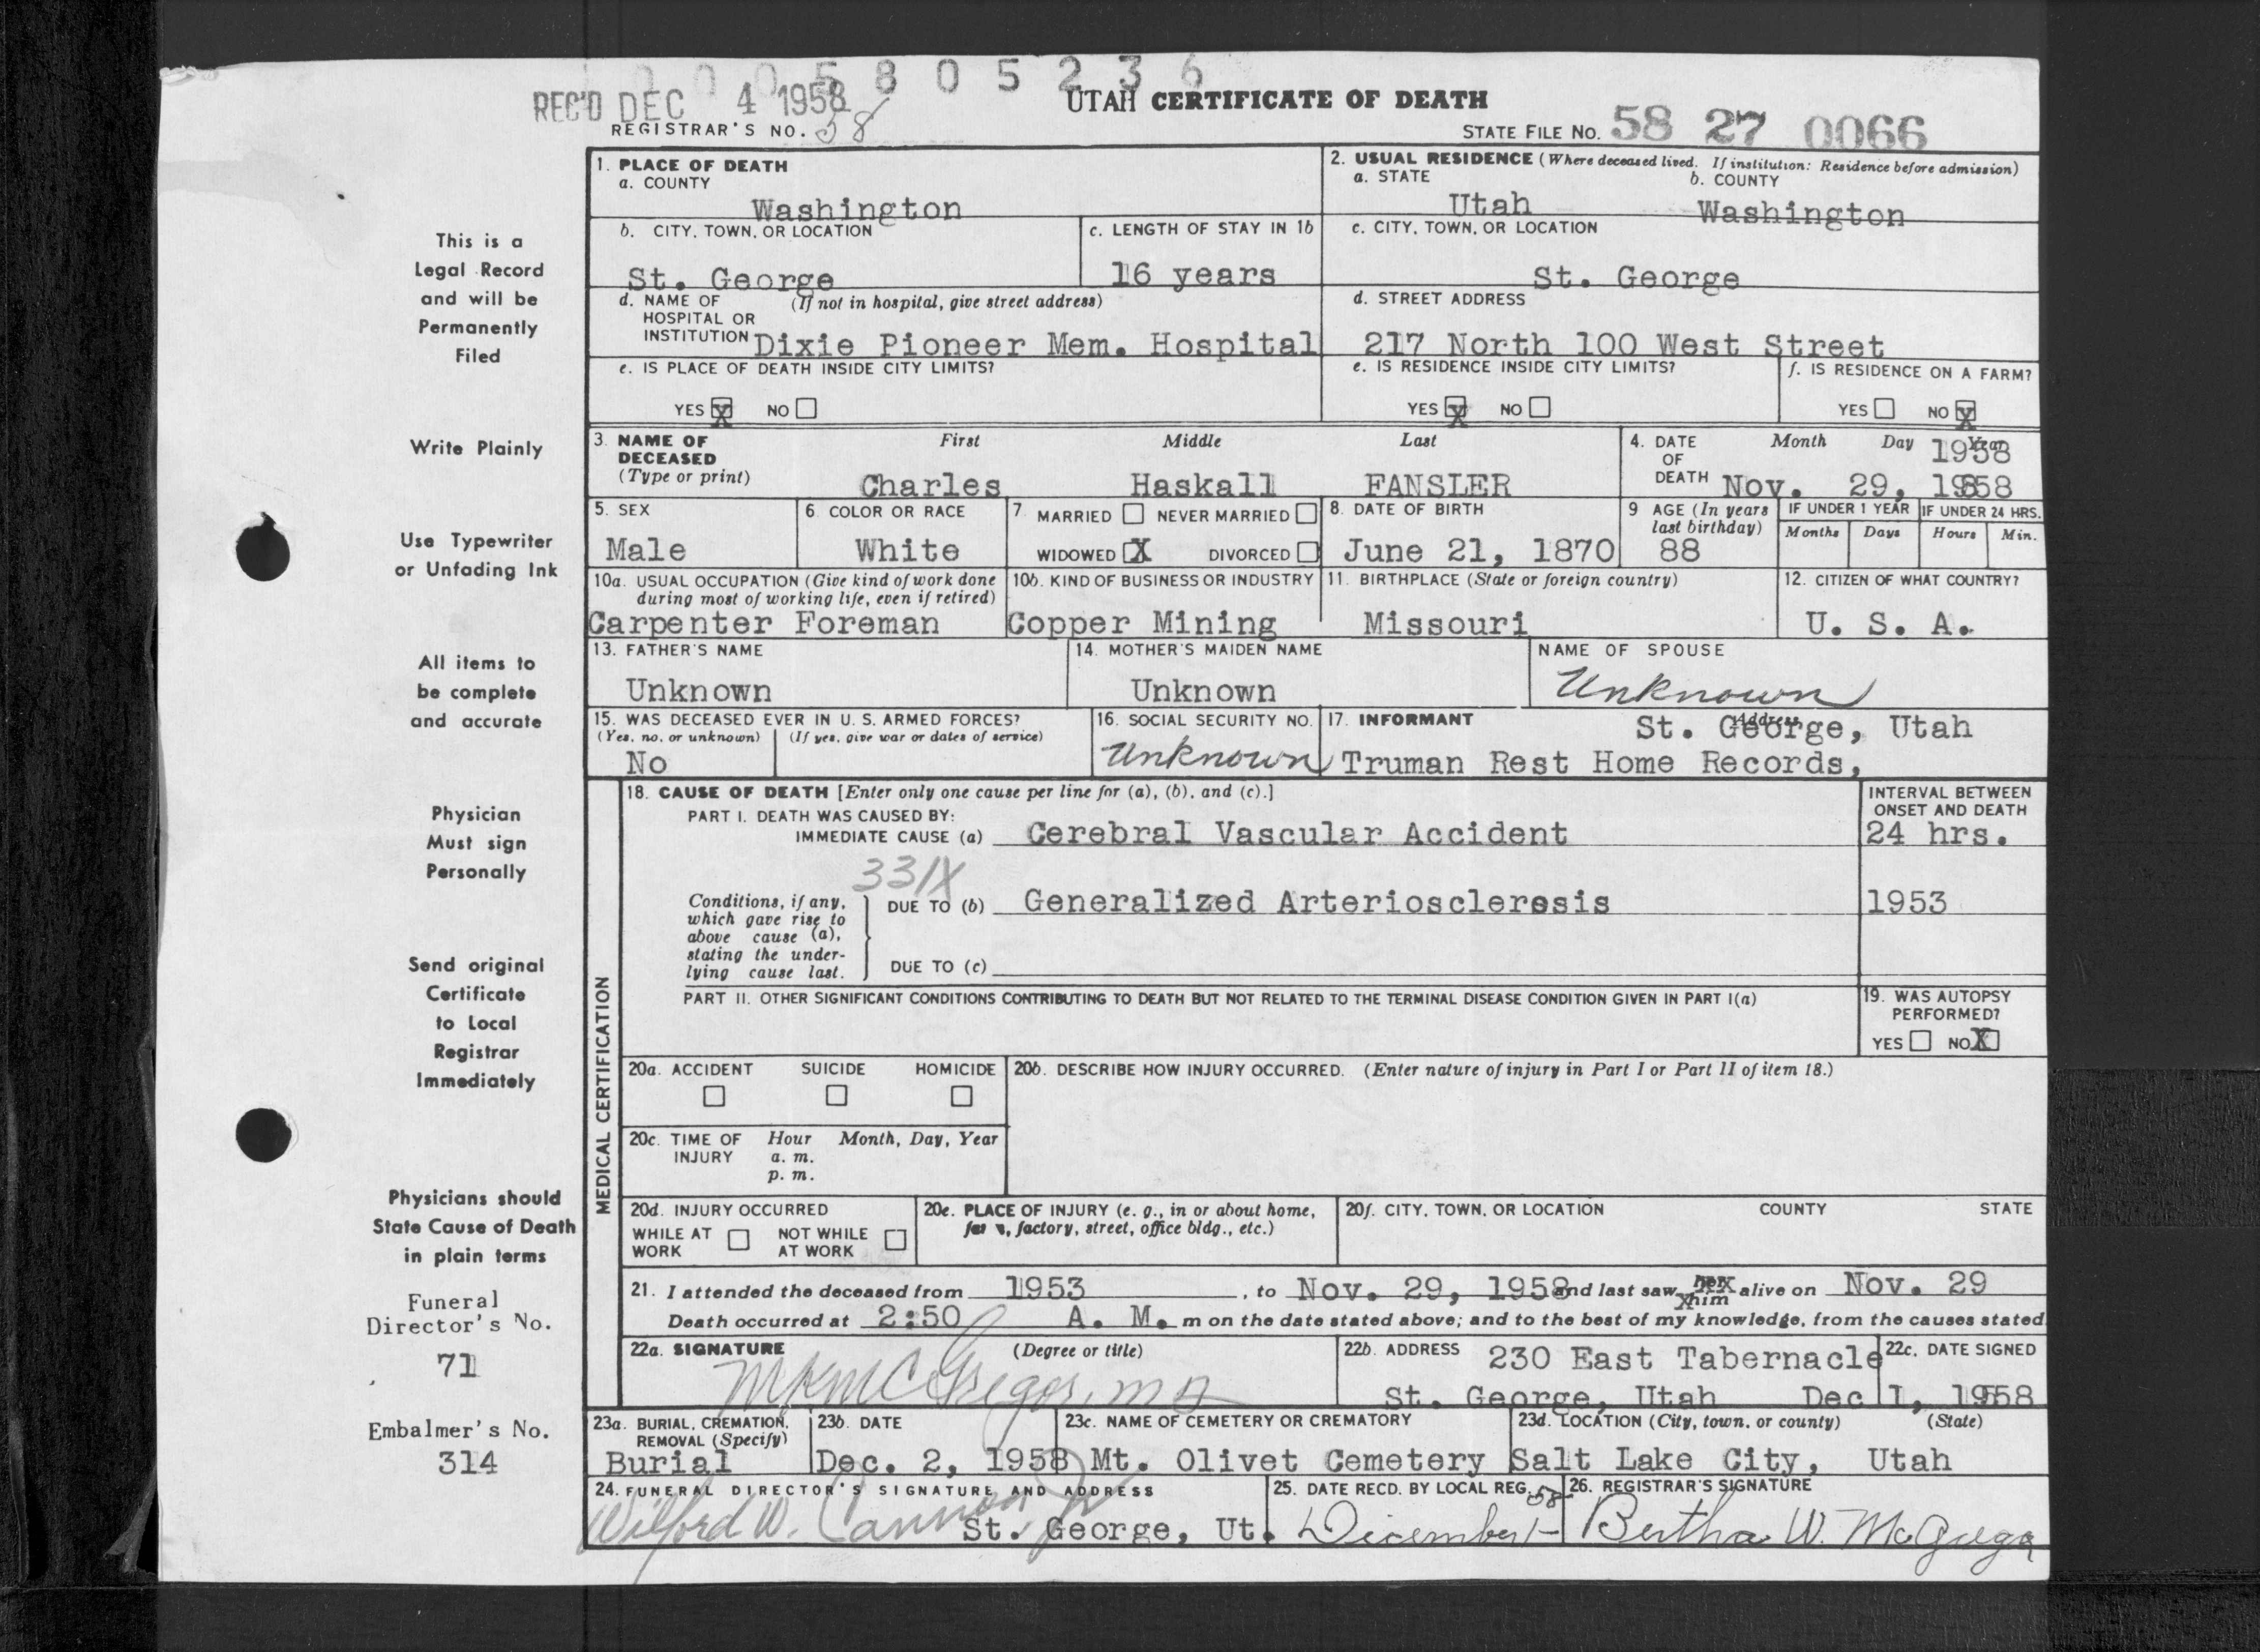 0005805236
REC'D DEC 4 1958
UTAH CERTIFICATE OF DEATH
REGISTRAR'S NO. 58
STATE FILE NO. 58 27 0066
This is a
Legal Record
and will be
Permanently
Filed
Write Plainly
Use Typewriter
or Unfading Ink
All items to
be complete
and accurate
Physician
Must sign
Personally
Send original
Certificate
to Local
Registrar
Immediately
Physicians should
State Cause of Death
in plain terms
Funeral
Director's No.
71
Embalmer's No.
314
1. PLACE OF DEATH
a. COUNTY
Washington
2. USUAL RESIDENCE (Where deceased lived. If institution: Residence before admission)
a. STATE b. COUNTY
Utah Washington
b. CITY, TOWN, OR LOCATION
St. George
c. LENGTH OF STAY IN 1b
16 years
c. CITY, TOWN, OR LOCATION
St. George
d. NAME OF (If not in hospital, give street address)
HOSPITAL OR
INSTITUTION Dixie Pioneer Mem. Hospital
d. STREET ADDRESS
217 North 100 West Street
e. IS PLACE OF DEATH INSIDE CITY LIMITS?
YES X NO
e. IS RESIDENCE INSIDE CITY LIMITS?
YES X NO
f. IS RESIDENCE ON A FARM?
YES NO X
3. NAME OF DECEASED (Type or print)
First Middle Last
Charles Haskall FANSLER
4. DATE OF DEATH
Month Day Year
1958
Nov. 29, 1958
5. SEX
Male
6. COLOR OR RACE
White
7. MARRIED NEVER MARRIED
WIDOWED X DIVORCED
8. DATE OF BIRTH
June 21, 1870
9 AGE (In years
last birthday)
88
IF UNDER 1 YEAR
Months Days
IF UNDER 24 HRS.
Hours Min.
10a. USUAL OCCUPATION (Give kind of work done
during most of working life, even if retired)
Carpenter Foreman
10b. KIND OF BUSINESS OR INDUSTRY
Copper Mining
11. BIRTHPLACE (State or foreign country)
Missouri
12. CITIZEN OF WHAT COUNTRY?
U. S. A.
13. FATHER'S NAME
Unknown
14. MOTHER'S MAIDEN NAME
Unknown
NAME OF SPOUSE
Unknown
15. WAS DECEASED EVER IN U. S. ARMED FORCES?
(Yes, no, or unknown) (If yes, give war or dates of service)
No
16. SOCIAL SECURITY NO.
Unknown
17. INFORMANT Address
St. George, Utah
Truman Rest Home Records,
MEDICAL CERTIFICATION
18. CAUSE OF DEATH [Enter only one cause per line for (a), (b), and (c).]
INTERVAL BETWEEN
ONSET AND DEATH
PART I. DEATH WAS CAUSED BY:
IMMEDIATE CAUSE (a) Cerebral Vascular Accident 24 hrs.
331X
Conditions, if any,
which gave rise to
above cause (a),
stating the under-
lying cause last.
DUE TO (b) Generalized Arteriosclerosis 1953
DUE TO (c)
PART II. OTHER SIGNIFICANT CONDITIONS CONTRIBUTING TO DEATH BUT NOT RELATED TO THE TERMINAL DISEASE CONDITION GIVEN IN PART I(a)
19. WAS AUTOPSY
PERFORMED?
YES NO X
20a. ACCIDENT SUICIDE HOMICIDE
20b. DESCRIBE HOW INJURY OCCURRED. (Enter nature of injury in Part I or Part II of item 18.)
20c. TIME OF INJURY
Hour Month, Day, Year
a. m.
p. m.
20d. INJURY OCCURRED
WHILE AT WORK NOT WHILE AT WORK
20e. PLACE OF INJURY (e. g., in or about home,
factory, street, office bldg., etc.)
20f. CITY, TOWN, OR LOCATION COUNTY STATE
21. I attended the deceased from 1953, to Nov. 29, 1958 and last saw her him alive on Nov. 29
Death occurred at 2:50 A. M. m on the date stated above; and to the best of my knowledge, from the causes stated
22a. SIGNATURE (Degree or title)
McGregor, MD
22b. ADDRESS
230 East Tabernacle
St. George, Utah
22c. DATE SIGNED
Dec 1, 1958
23a. BURIAL, CREMATION,
REMOVAL (Specify)
Burial
23b. DATE
Dec. 2, 1958
23c. NAME OF CEMETERY OR CREMATORY
Mt. Olivet Cemetery
23d. LOCATION (City, town, or county) (State)
Salt Lake City, Utah
24. FUNERAL DIRECTOR'S SIGNATURE AND ADDRESS
Wilford W. Cannon Jr
St. George, Ut.
25. DATE RECD. BY LOCAL REG.
December 1-58
26. REGISTRAR'S SIGNATURE
Bertha W. McGregor